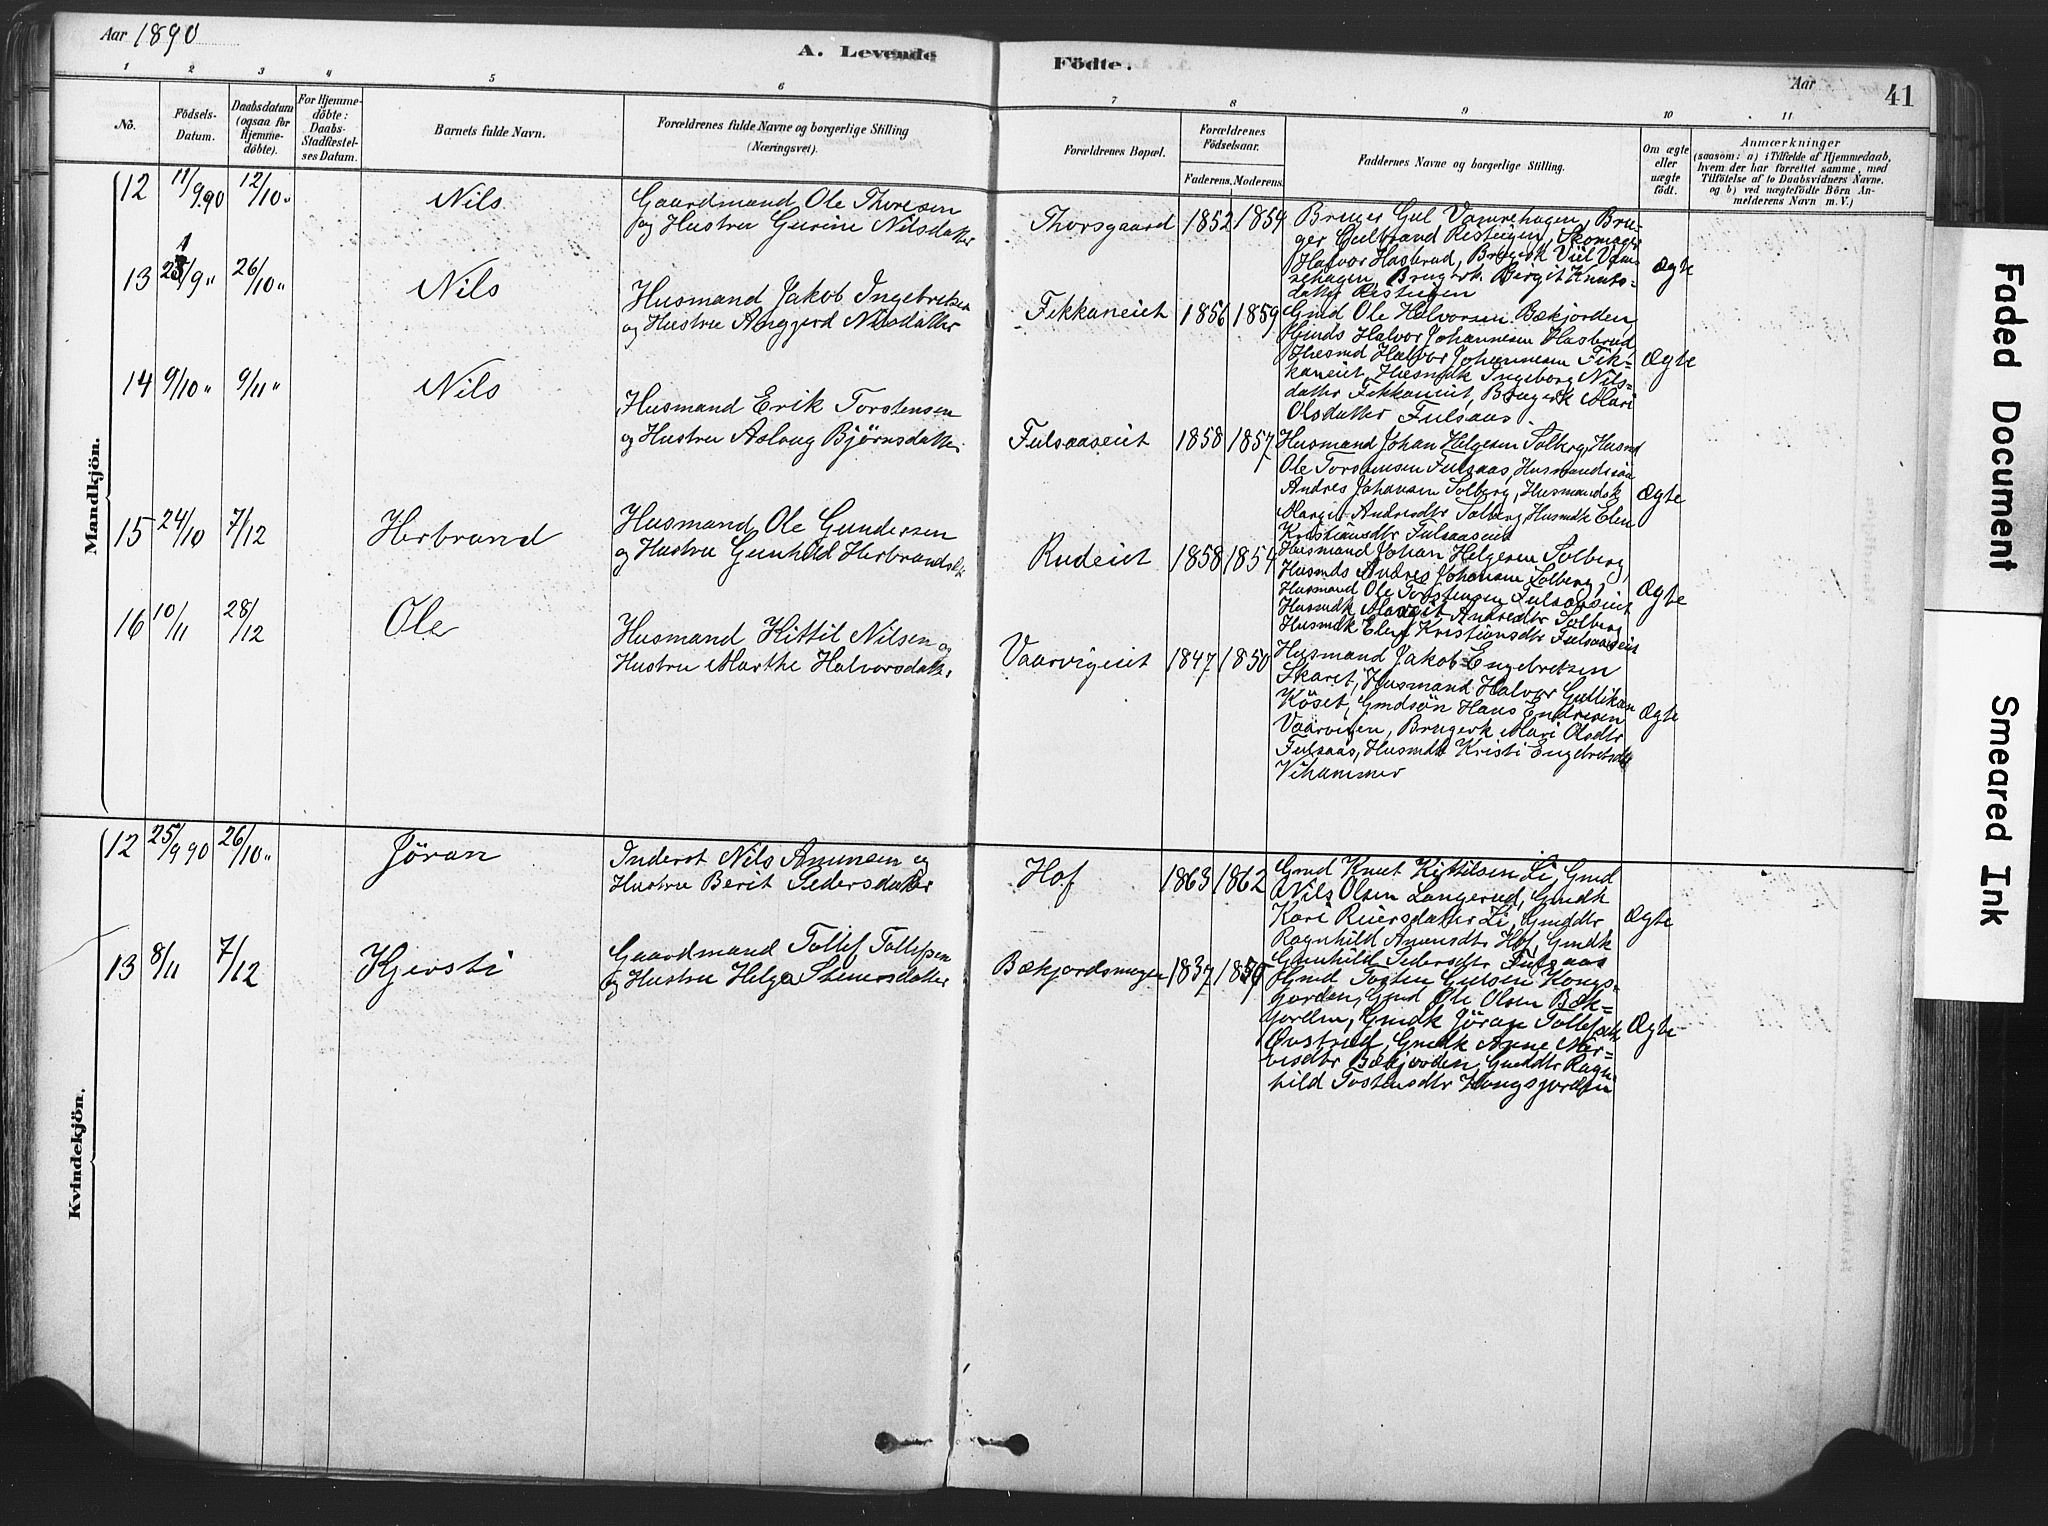 Aar 1890
A. Levende Födte.
Aar
41
1 2 3 4 5 6 7 8 9 10 11
No.
Födsels-
Datum.
Daabsdatum
(ogsaa for
Hjemme-
döbte).
For Hjemme-
döbte:
Daabs-
Stadfæstel-
ses Datum.
Barnets fulde Navn.
Forældrenes fulde Navne og borgerlige Stilling
(Næringsvei).
Forældrenes Bopæl.
Forældrenes
Födselsaar.
Faderens. Moderens.
Faddernes Navne og borgerlige Stilling.
Om ægte
eller
uægte
födt.
Anmærkninger
(saasom: a) i Tilfælde af Hjemmedaab,
hvem der har forrettet samme, med
Tilföielse af to Daabsvidners Navne,
og b) ved uægtefödte Börn An-
melderens Navn m. V.)
Mandkjön.
12 11/9.90 12/10 „ Nils
Gaardmand Ole Thoresen
og Hustru Gurine Nilsdatter
Thorsgaard 1852 1859
Bruger Gul Vamrehagen, Bru-
ger Gulbrand Ristugen, Skomager
Halvor Hasbrud, Brugerk
Brugerk. Bergit Knuts-
datter Ristugen
Ægte
13 25/9 „ 26/10 „ Nils
Husmand Jakob Ingebretsen
og Hustru Anggjerd Nilsdatter
Fikkaneiet 1856 1859
Gmd Ole Halvorsen Bækjorden,
Halvor Johannesen Hasbrud,
Husmd Halvor Johannesen Fik-
kaneiet, Husmdk Ingeborg Nils-
datter Fikkaneiet, Brugerk Mari
Olsdatter Fulsaas.
Ægte
14 9/10 „ 9/11 „ Nils
Husmand Erik Torstensen
og Hustru Aslaug Bjørnsdatter
Fulsaaseiet 1858 1857
Husmand Johan Helgesen Solberg, Husmd
Ole Torstensen Fulsaas, Husmandssøn
Andres Johansen Solberg, Husmandsk
Margit Andresdtr Solberg, Husmdk Elen
Kristiansdtr Fulsaaseiet
Ægte
15 24/10 7/12 Herbrand
Husmand Ole Gundersen
og Hustru Gunhild Herbrandsdtr
Rudeiet 1858 1854
Husmand Johan Helgesen Solberg,
Husmds Andres Johansen Solberg,
Husmand Ole Torstensen Fulsaaseiet
Husmdk Margit Andresdtr Solberg
Husmdk Elen Kristiansdtr Fulsaaseiet
Ægte
16 10/11 28/12 Ole
Husmand Kittil Nilsen og
Hustru Marthe Halvorsdatter
Vaarvigeiet 1847 1850
Husmand Jakob Engebretsen
Skaret, Husmand Halvor Gulliksen
Köset, Gmdsön Hans Endresen
Vaarvigen, Brugerk Mari Olsdtr
Fulsaas, Husmdk Kristi Engebretsdtr
Vihammer
Ægte
Kvindekjön.
12 25/9 90 26/10 „ Jöran
Inderst Nils Amunsen og
Hustru Berit Pedersdatter
Hof 1863 1862
Gmd Knut Kittilsen Li, Gmd
Nils Olsen Langerud, Gmdk
Kari Reiersdatter Li, Gmddtr
Ragnhild Amunsdtr Hof, Gmdk
Gunhild Pedersdtr Fulsaas
Ægte
13 8/11 7/12 Kjersti
Gaardmand Tollef Tollefsen
og Hustru Helga Steinersdatter
Bækjordsmogen 1837
Gmd Tosten Gulsen Kongs-
jorden, Gmd Ole Olsen Bæk-
jorden, Gmdk Jöran Tollefsdtr
Øvstrud, Gmdk Anne Ner-
visdtr Bækjorden, Gmddtr Ragn-
hild Tostensdtr Kongsjorden
Ægte
Faded Document
Smeared Ink